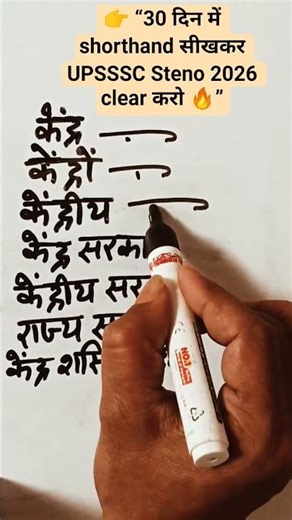 👉 “30 दिन में
shorthand सीखकर
UPSSSC Steno 2026
clear करो 🔥”
केंद्र
केंद्रों
केंद्रीय
केंद्र
केंद्रीय
राज्य
केंद्र
NO.1